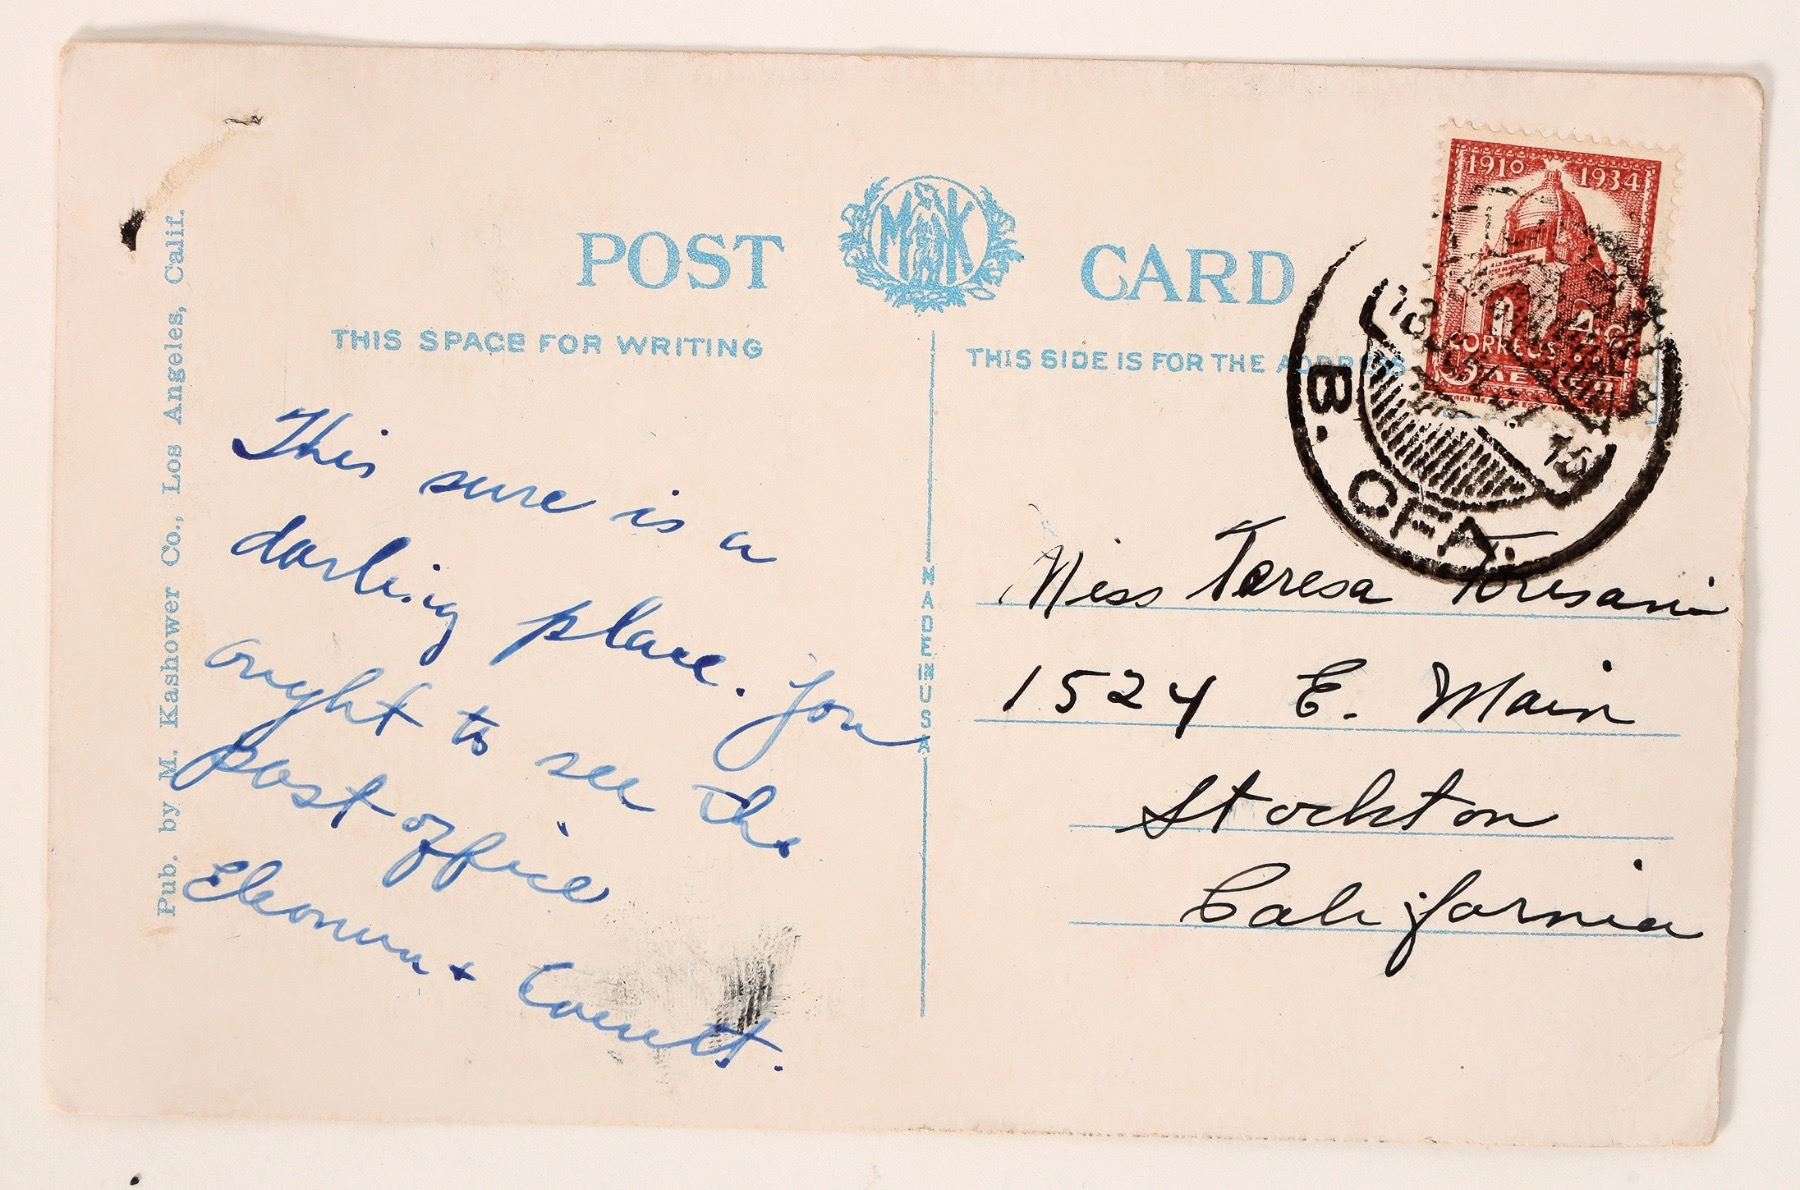 POST CARD
MK
THIS SPACE FOR WRITING
THIS SIDE IS FOR THE ADDRESS
Pub. by M. Kashower Co., Los Angeles, Calif.
MADE IN USA
This sure is a
darling place. You
ought to see the
post office
Eleanor + Everett.
1910 1934
4c
CORREOS
B. OFA.
15
Miss Teresa Torisani
1524 E. Main
Stockton
California